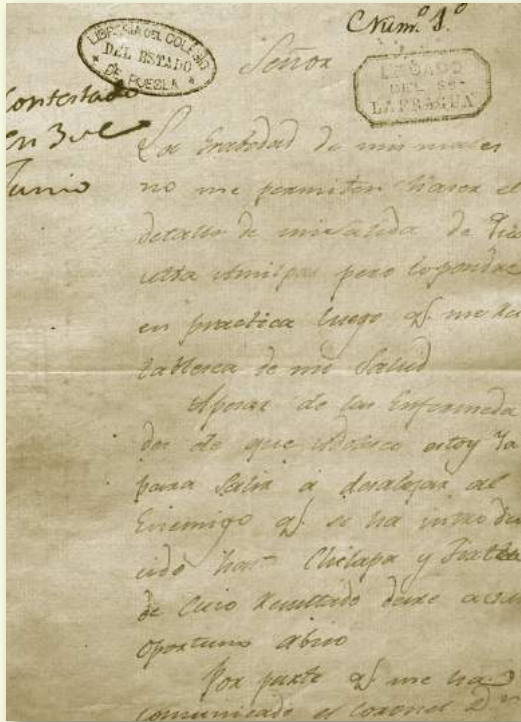 Num.º 1.º
LIBRERIA DEL COLEGIO
DEL ESTADO
DE PUEBLA
LEGADO
DEL SR
LAFRAGUA
Señor
Contestado
en 3 de
Junio
La Grabedad de mis males
no me permiten haser el
detalle de mi salida de
Amilpas pero lo pondre
en practica luego q.e me Res
tablesca de mi Salud
Apesar de las Enfermeda
des de que adolesco estoy ya
para Salir á desalojar al
Enemigo q.e se ha introdu
cido Chilapa y
de Cuio Resultado dare a su
oportuno abiso
Por parte q.e me ha
comunicado el Coronel Dn